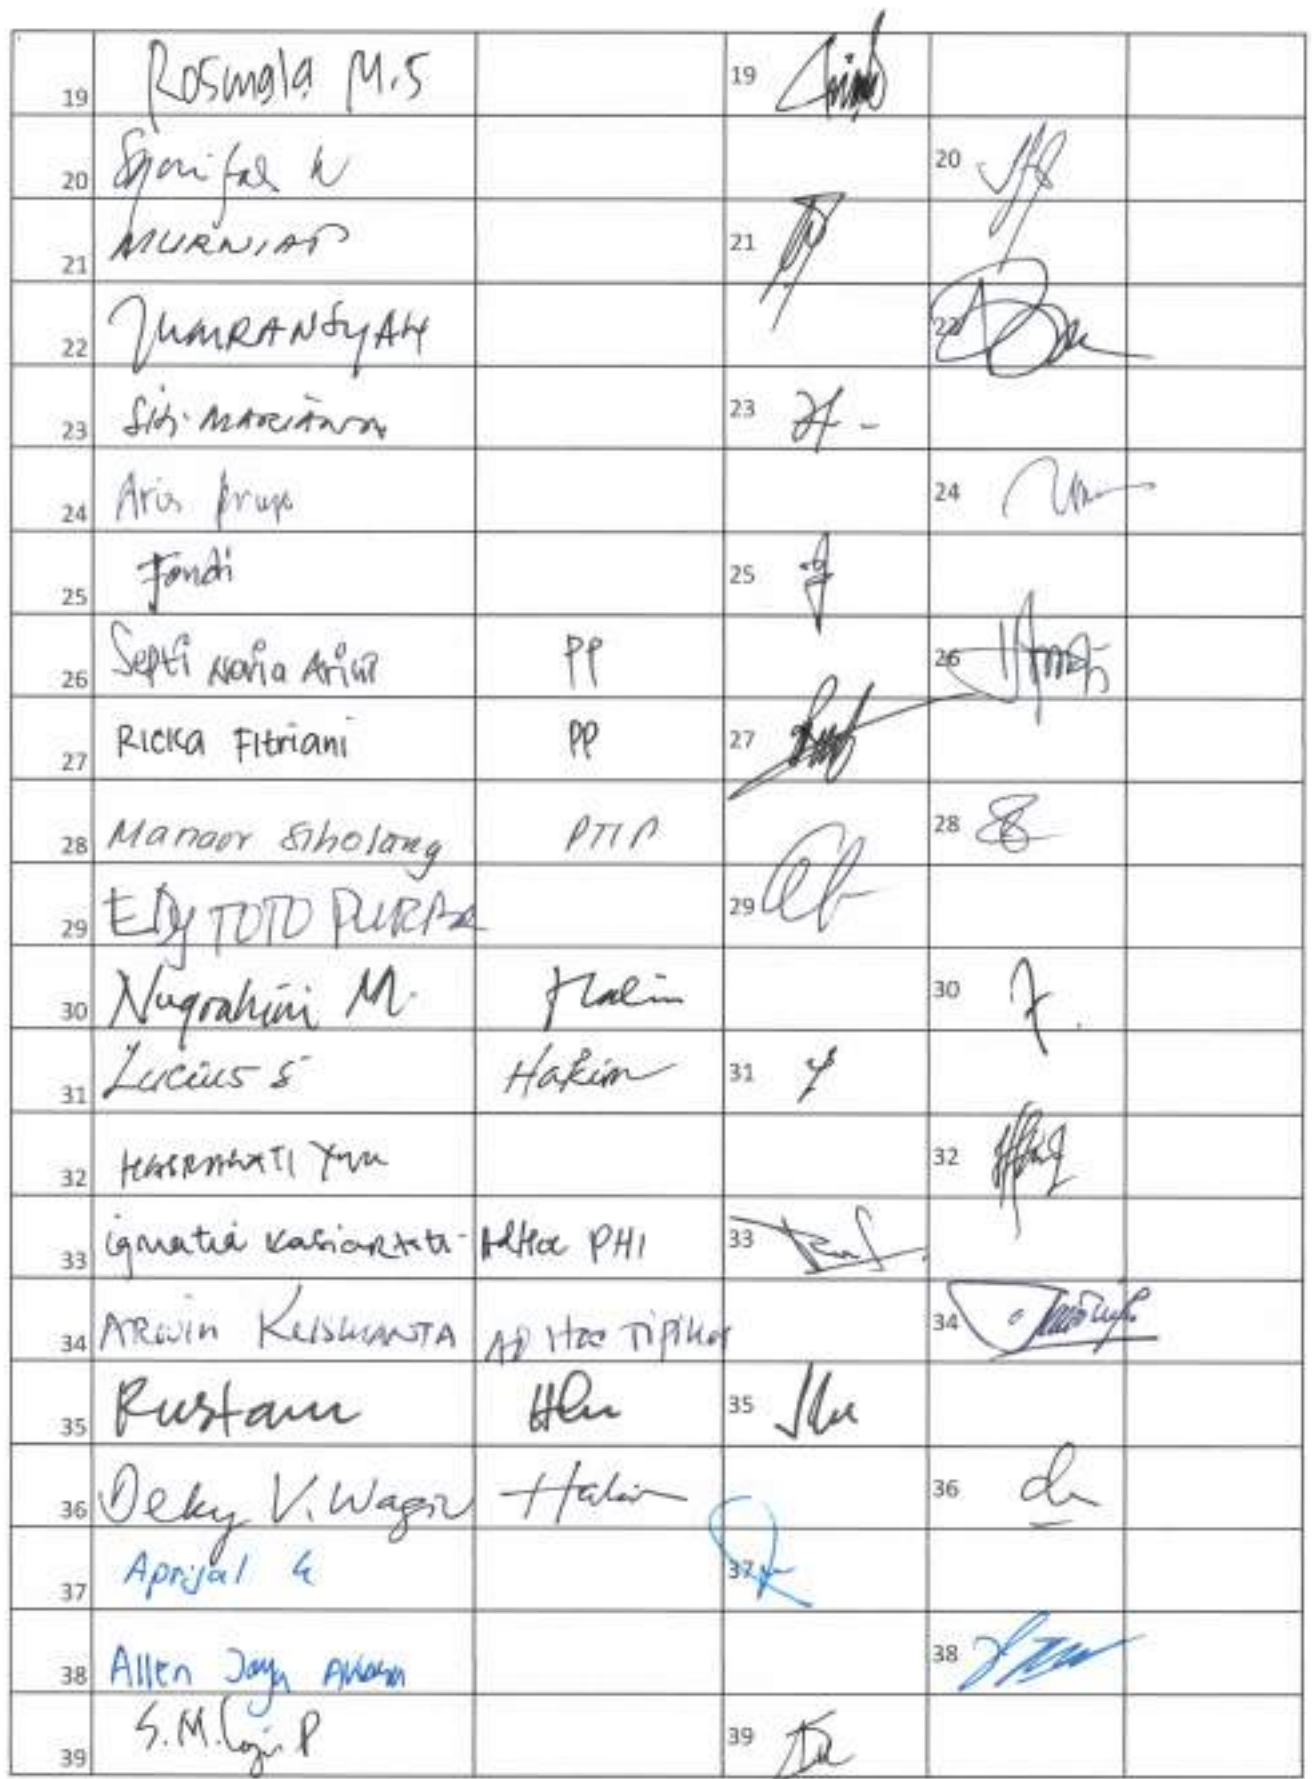 19 Rosmala M.S 19
20 20
21 MURNIATI 21
22 JUMRANSYAH 22
23 Siti MARIANA 23
24 Aris 24
25 Fandi 25
26 Septi Novia Arini PP 26
27 RICKA FItriani PP 27
28 Mangor Siholang PTIP 28
29 EDy TOTO PURBA 29
30 Nugrahini M. Hakim 30
31 Lucius S Hakim 31
32 32
33 ignatia AdHoc PHI 33
34 ARWIN KUSMANTA AD Hoc TIPIKOR 34
35 Rustam 35
36 Deky V. Wagiu Hakim 36
37 Aprijal 37
38 Allen Jaya 38
39 S.M. P 39